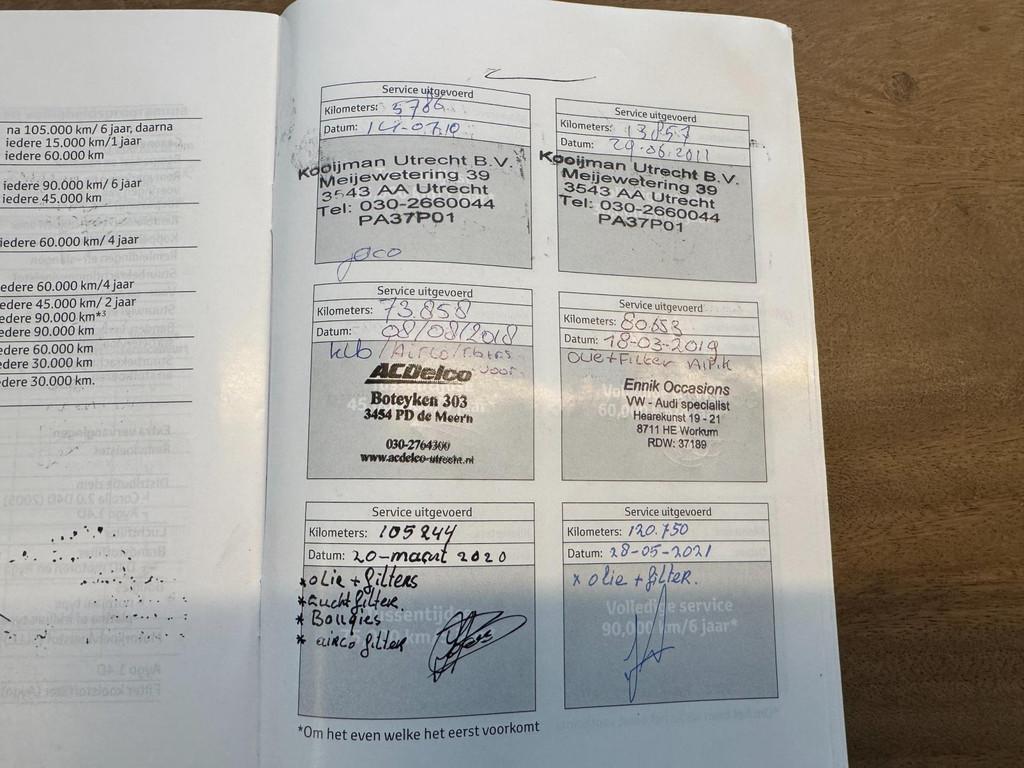 na 105.000 km/ 6 jaar, daarna
iedere 15.000 km/1 jaar
iedere 60.000 km
iedere 90.000 km/ 6 jaar
iedere 45.000 km
iedere 60.000 km/ 4 jaar
iedere 60.000 km/4 jaar
edere 45.000 km/ 2 jaar
edere 90.000 km*³
edere 90.000 km
edere 60.000 km
edere 30.000 km
edere 30.000 km.
Service uitgevoerd
Kilometers: 5786
Datum: 14-07.10
Kooijman Utrecht B.V.
Meijewetering 39
3543 AA Utrecht
Tel: 030-2660044
PA37P01
Service uitgevoerd
Kilometers: 13857
Datum: 29.06.2011
Kooijman Utrecht B.V.
Meijewetering 39
3543 AA Utrecht
Tel: 030-2660044
PA37P01
Service uitgevoerd
Kilometers: 73.858
Datum: 08/08/2018
ACDelco
Boteyken 303
3454 PD de Meern
030-2764300
www.acdelco-utrecht.nl
Service uitgevoerd
Kilometers: 80653
Datum: 18-03-2019
Olie+Filter
Volle
60,0
Ennik Occasions
VW - Audi specialist
Hearekunst 19 - 21
8711 HE Workum
RDW: 37189
Service uitgevoerd
Kilometers: 105244
Datum: 20-maart 2020
* olie + filters
* Luchtfilter
* Bougies
* airco filter
Service uitgevoerd
Kilometers: 120.750
Datum: 28-05-2021
* olie + filter.
Volledige service
90,000 km/6 jaar*
*Om het even welke het eerst voorkomt